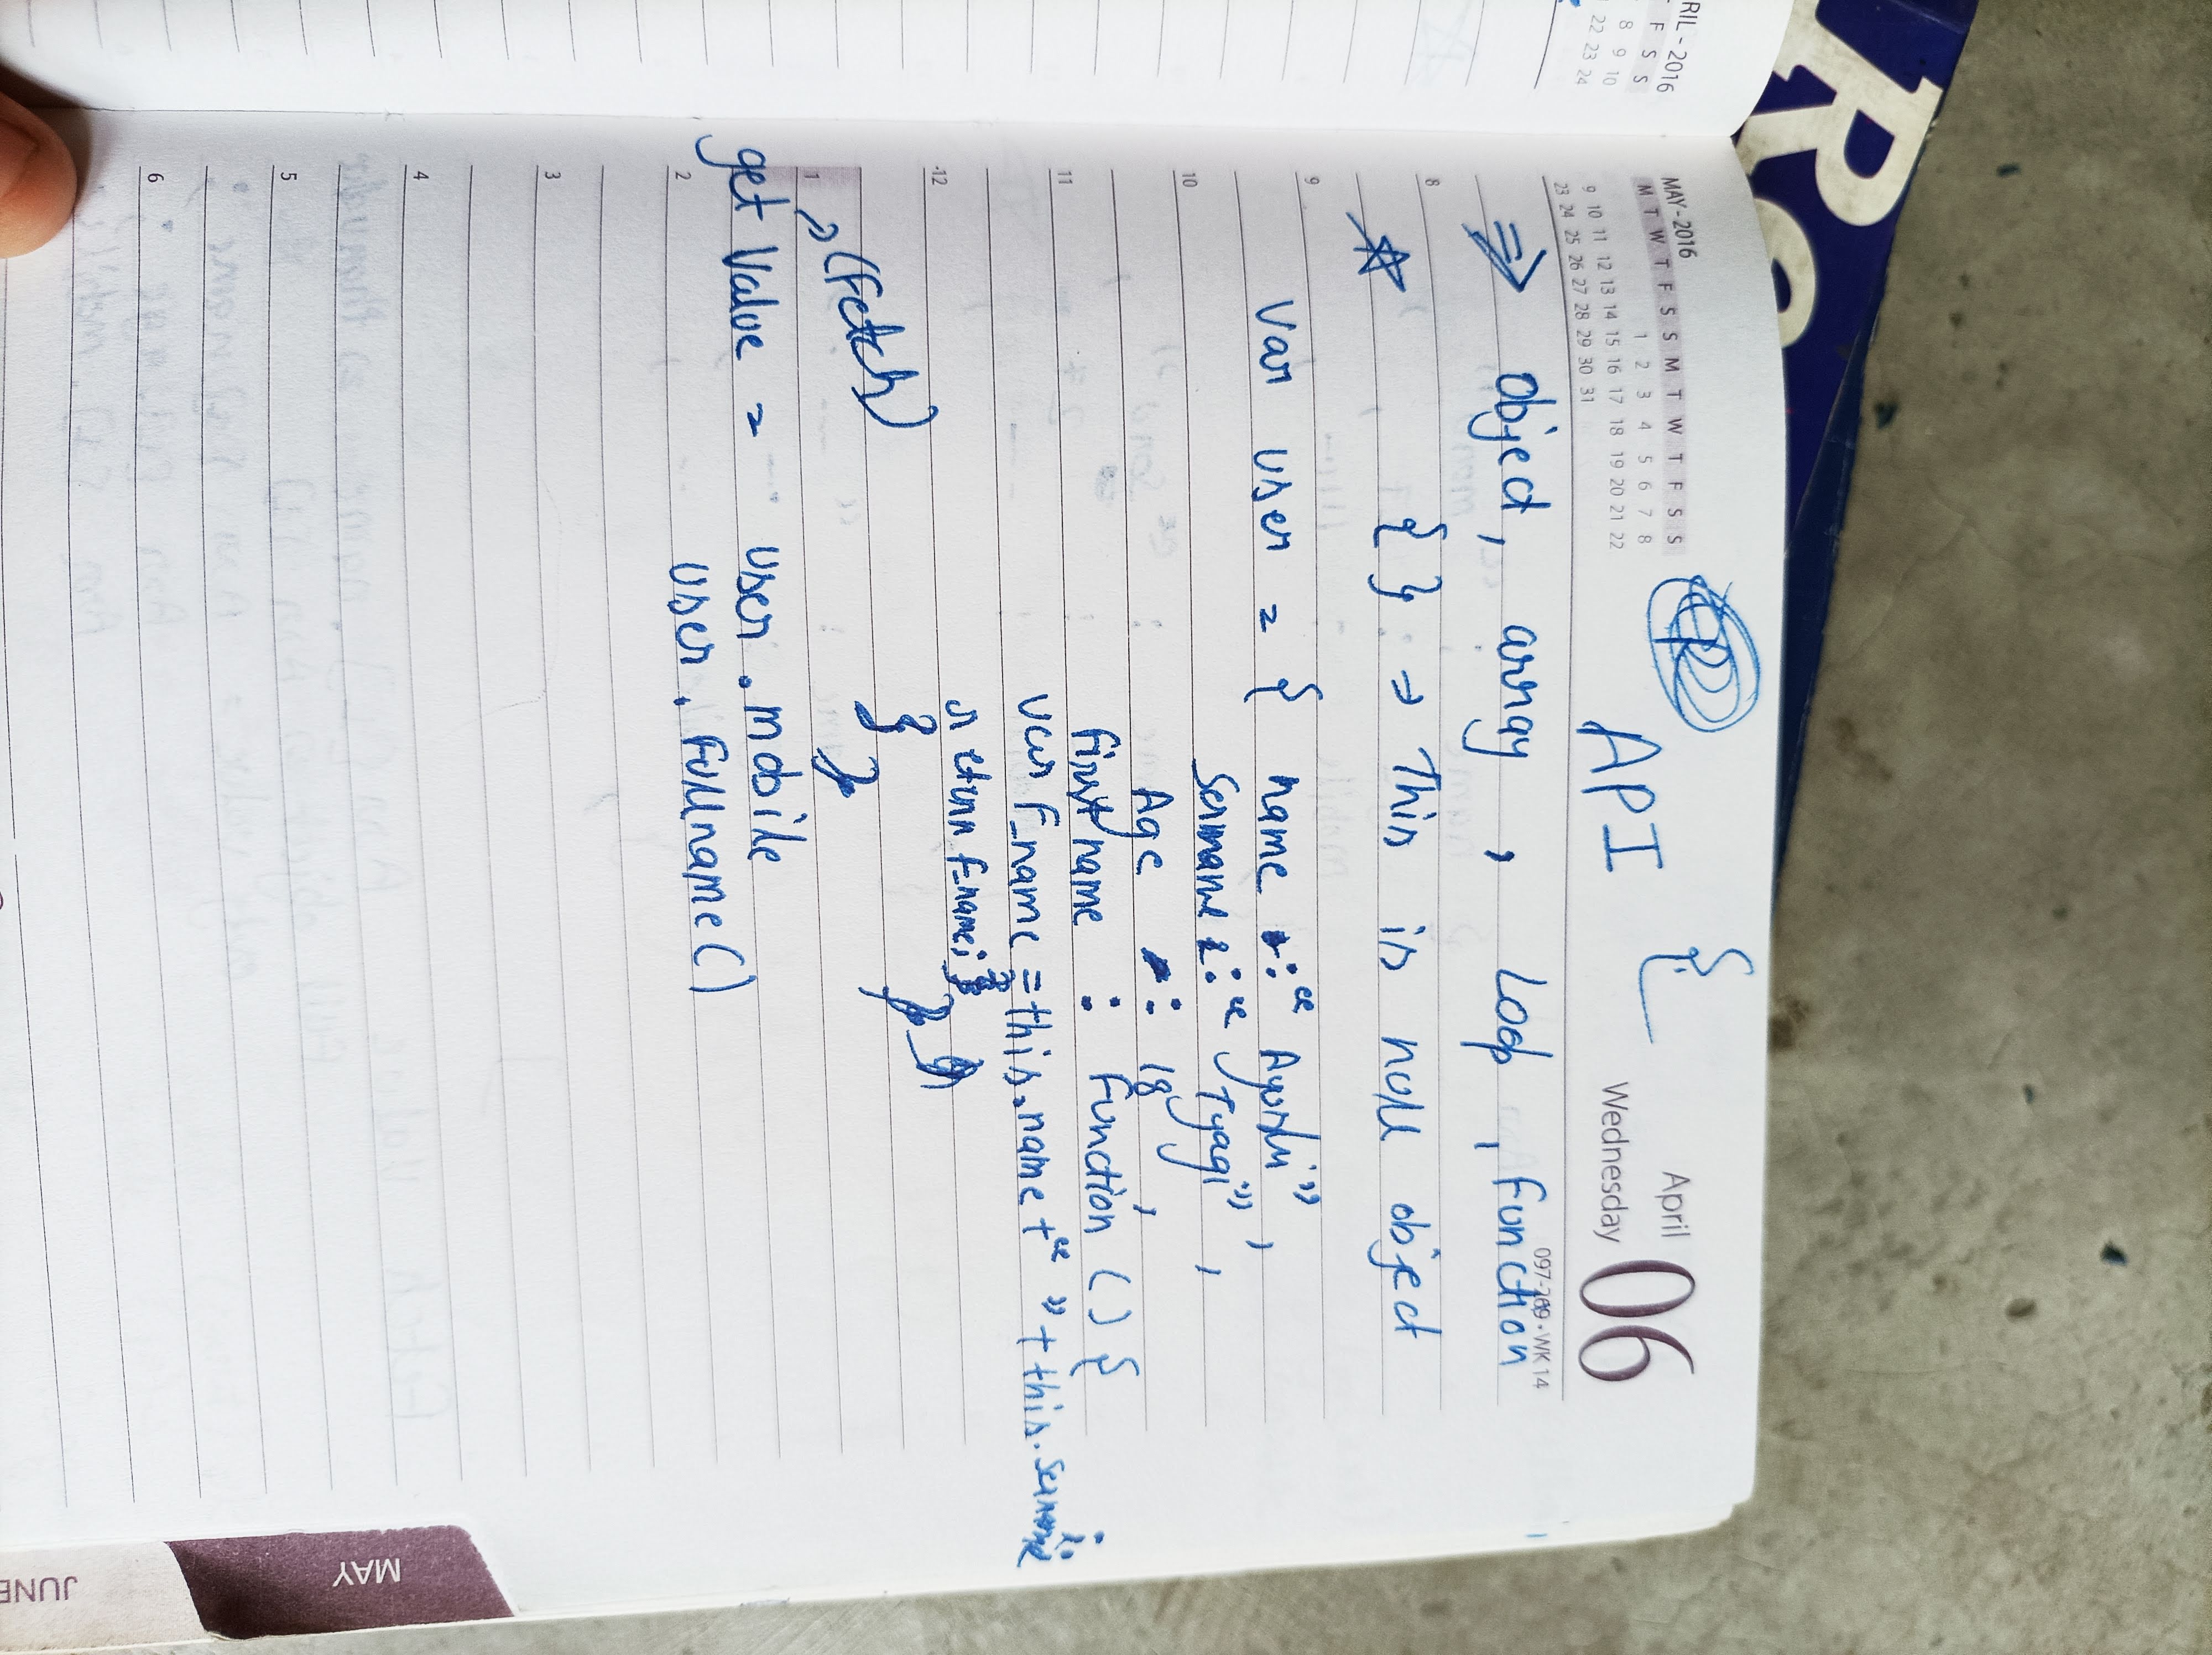 Re
RIL - 2016
F S S
8 9 10
22 23 24
MAY - 2016
M T W T F S S M T W T F S S
1 2 3 4 5 6 7 8
9 10 11 12 13 14 15 16 17 18 19 20 21 22
23 24 25 26 27 28 29 30 31
{
API
April
Wednesday 06
097-269 • WK 14
⇒ object, array , Loop , Function
8
☆ { } ⇒ This is null object
9
Var user = { name : “ Ayushi ” ,
Sername : “ Tyagi ” ,
10
Age : 18 ,
first name : Function ( ) {
11
var F_name = this.name + “ ” + this. Sername ;
return F_name; }
12
}
(Fetch)
}
1
get Value = user . mobile
user . Fullname ( )
2
3
4
5
6
MAY
JUNE